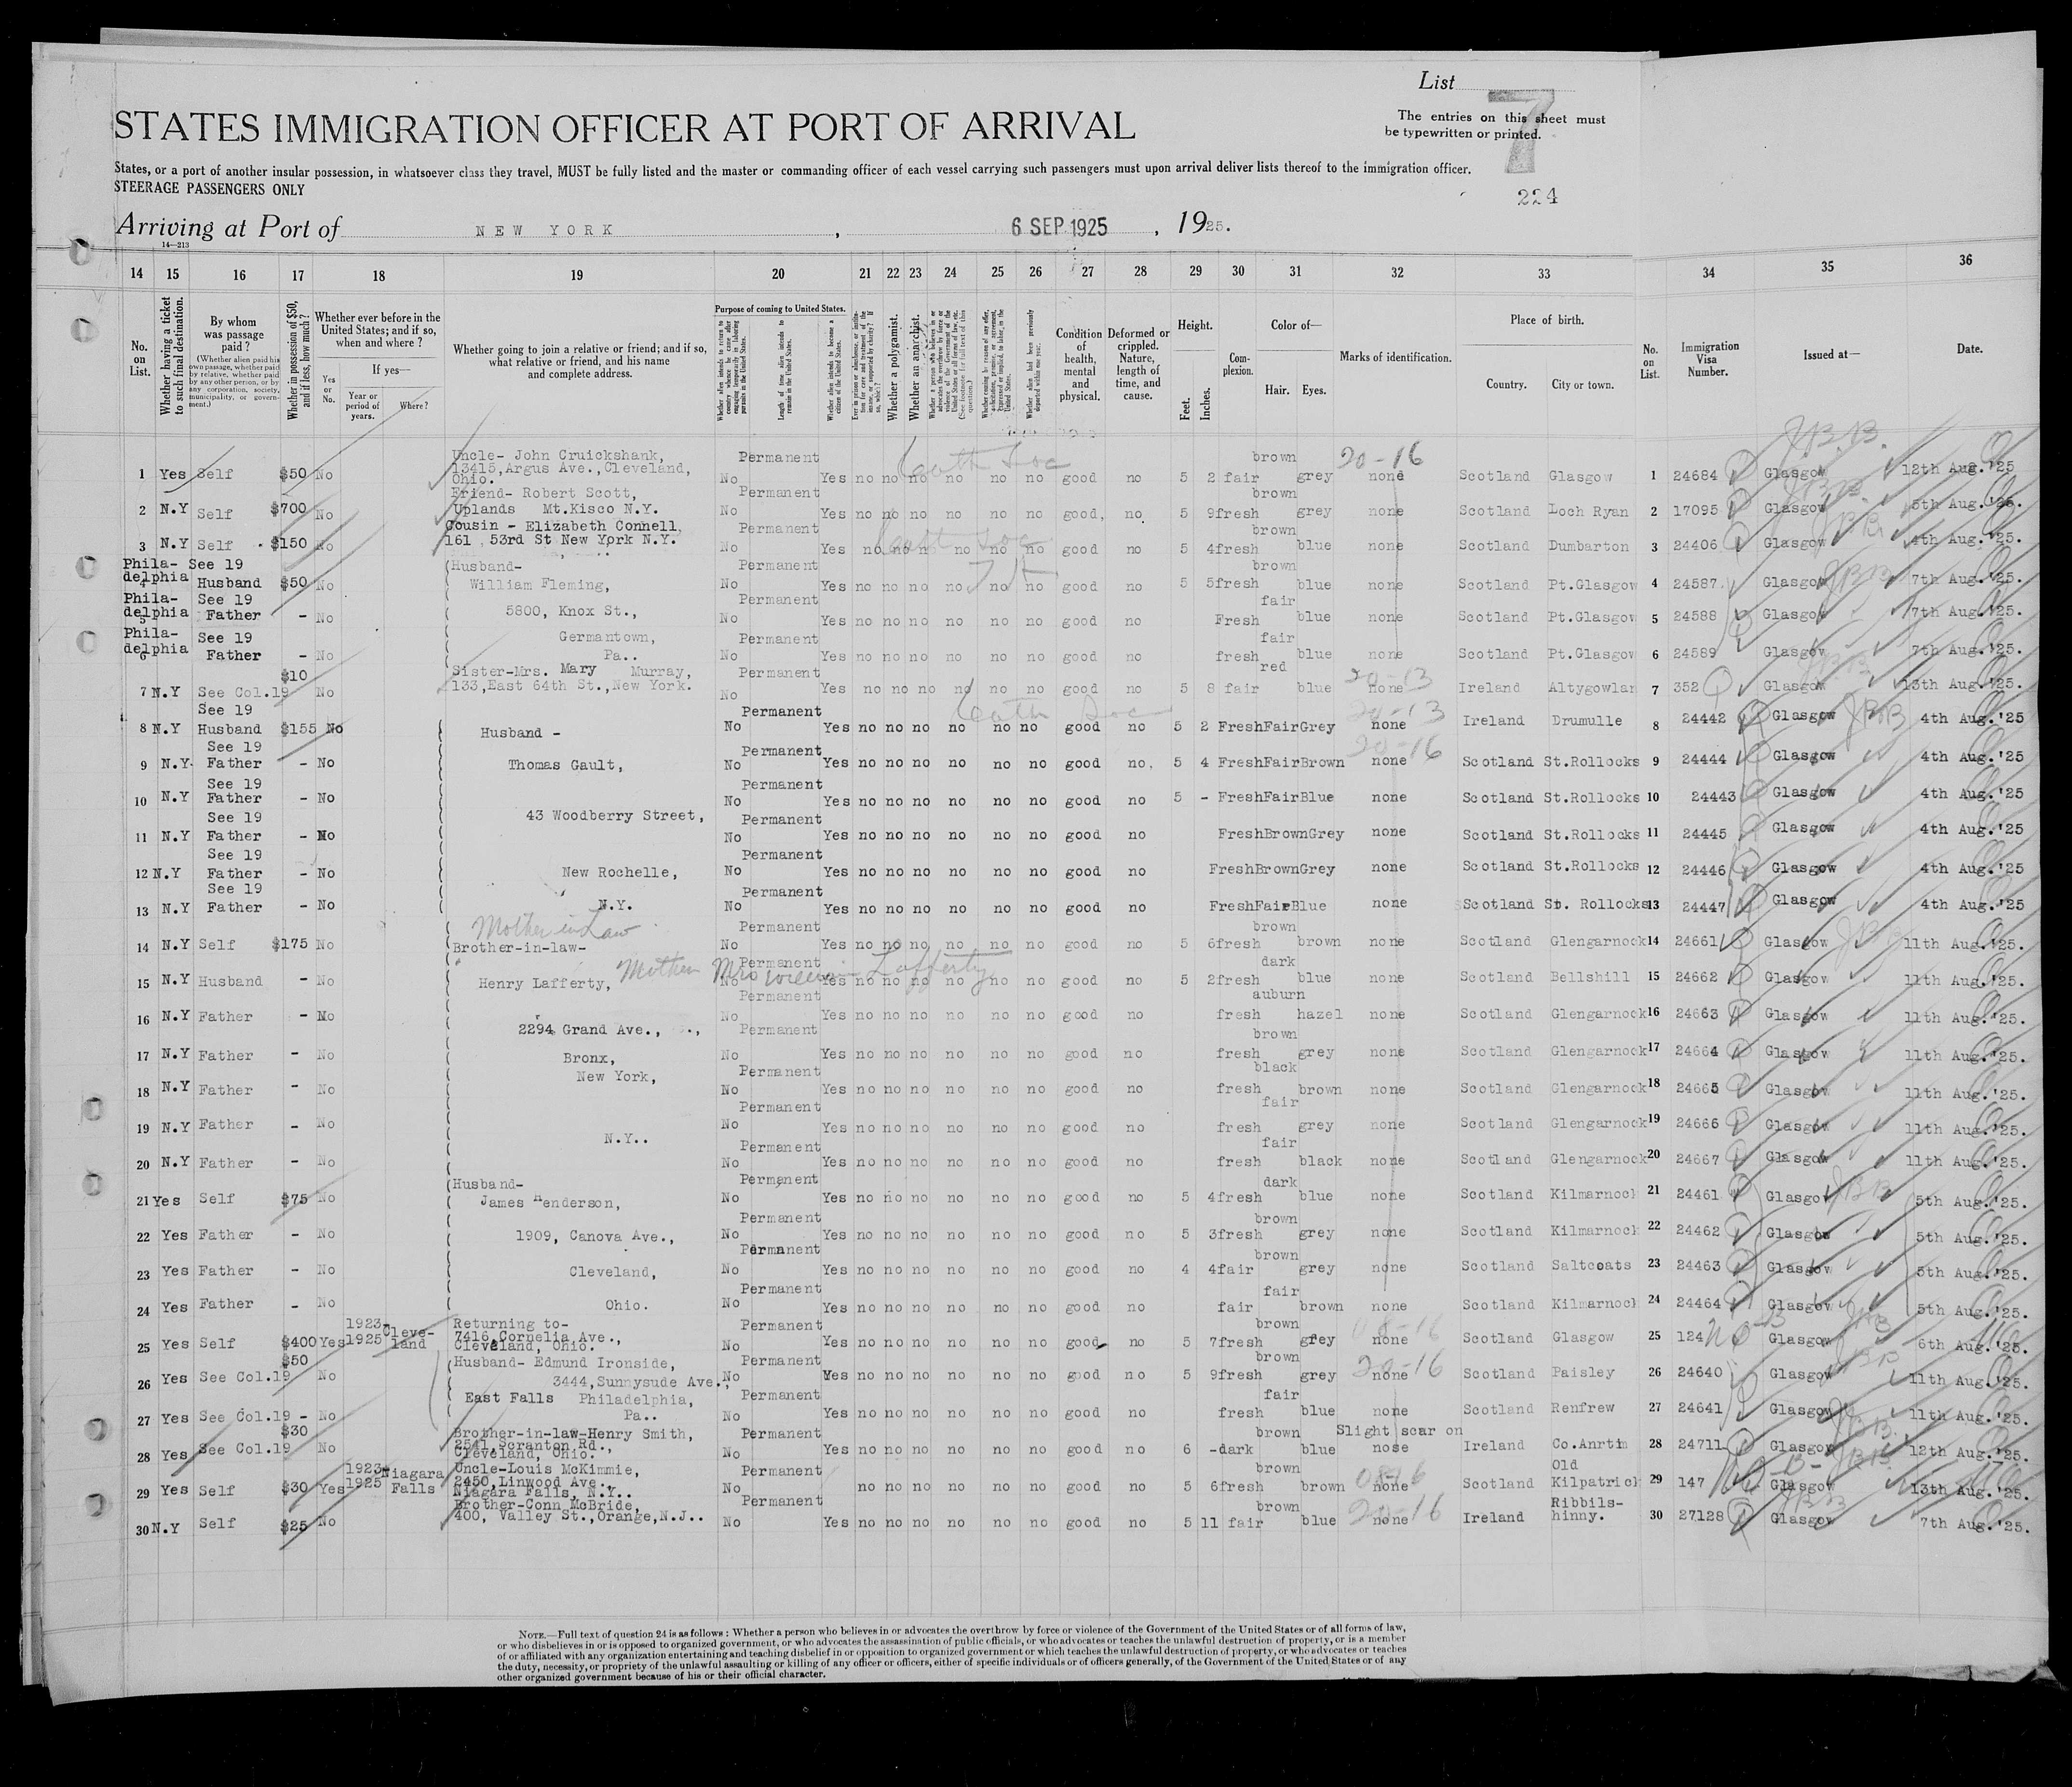 List 7
STATES IMMIGRATION OFFICER AT PORT OF ARRIVAL
The entries on this sheet must
be typewritten or printed.
States, or a port of another insular possession, in whatsoever class they travel, MUST be fully listed and the master or commanding officer of each vessel carrying such passengers must upon arrival deliver lists thereof to the immigration officer.
STEERAGE PASSENGERS ONLY
224
Arriving at Port of NEW YORK, 6 SEP 1925, 1925.
14—213
14 15 16 17 18 19 20 21 22 23 24 25 26 27 28 29 30 31 32 33 34 35 36
No. on List.
Whether having a ticket to such final destination.
By whom was passage paid?
(Whether alien paid his own passage, whether paid by relative, whether paid by any other person, or by any corporation, society, municipality, or government.)
Whether in possession of $50, and if less, how much?
Whether ever before in the United States; and if so, when and where?
Yes or No.
If yes—
Year or period of years.
Where?
Whether going to join a relative or friend; and if so, what relative or friend, and his name and complete address.
Purpose of coming to United States.
Length of time alien intends to remain in the United States.
Whether alien intends to become a citizen of the United States.
Whether a polygamist.
Whether an anarchist.
Condition of health, mental and physical.
Deformed or crippled. Nature, length of time, and cause.
Height.
Feet.
Inches.
Complexion.
Color of—
Hair.
Eyes.
Marks of identification.
Place of birth.
Country.
City or town.
No. on List.
Immigration Visa Number.
Issued at—
Date.
1 Yes Self $50 No Uncle- John Cruickshank, 13415, Argus Ave., Cleveland, Ohio. No Permanent Yes no no no no no no good no 5 2 fair brown grey none 20-16 Scotland Glasgow 1 24684 Glasgow 12th Aug.'25
2 N.Y Self $700 No Friend- Robert Scott, Uplands Mt.Kisco N.Y. No Permanent Yes no no no no no no good, no 5 9 fresh brown grey none Scotland Loch Ryan 2 17095 Glasgow 5th Aug.'25.
3 N.Y Self $150 No Cousin - Elizabeth Connell, 161 53rd St New York N.Y. No Permanent Yes no no n no no no good no 5 4 fresh brown blue none Scotland Dumbarton 3 24406 Glasgow 4th Aug.'25.
4 Phila-delphia See 19 Husband $50 No (Husband- William Fleming, No Permanent Yes no no no no no no good no 5 5 fresh brown blue none Scotland Pt.Glasgow 4 24587 Glasgow 7th Aug.'25.
5 Phila-delphia See 19 Father - No 5800, Knox St., No Permanent Yes no no no no no no good no Fresh fair blue none Scotland Pt.Glasgow 5 24588 Glasgow 7th Aug.'25.
6 Phila-delphia See 19 Father - No Germantown, Pa.. No Permanent Yes no no no no no no good no fresh fair blue none Scotland Pt.Glasgow 6 24589 Glasgow 7th Aug.'25.
7 N.Y See Col.19 $10 No Sister-Mrs. Mary Murray, 133, East 64th St., New York. No Permanent Yes no no no no no no good no 5 8 fair red blue none 20-13 Ireland Altygowlan 7 352 Glasgow 13th Aug.'25.
8 N.Y See 19 Husband $155 No Husband - No Permanent Yes no no no no no no good no 5 2 Fresh Fair Grey none 20-13 Ireland Drumulle 8 24442 Glasgow 4th Aug.'25
9 N.Y. See 19 Father - No Thomas Gault, No Permanent Yes no no no no no no good no. 5 4 Fresh Fair Brown none 20-16 Scotland St.Rollocks 9 24444 Glasgow 4th Aug.'25
10 N.Y See 19 Father - No No Permanent Yes no no no no no no good no 5 - Fresh Fair Blue none Scotland St.Rollocks 10 24443 Glasgow 4th Aug.'25
11 N.Y See 19 Father - No 43 Woodberry Street, No Permanent Yes no no no no no no good no Fresh Brown Grey none Scotland St.Rollocks 11 24445 Glasgow 4th Aug.'25
12 N.Y See 19 Father - No New Rochelle, No Permanent Yes no no no no no no good no Fresh Brown Grey none Scotland St.Rollocks 12 24446 Glasgow 4th Aug.'25
13 N.Y See 19 Father - No N.Y. No Permanent Yes no no no no no no good no Fresh Fair Blue none Scotland St. Rollocks 13 24447 Glasgow 4th Aug.'25
Mother in Law
14 N.Y Self $175 No Brother-in-law- No Permanent Yes no no no no no no good no 5 6 fresh brown brown none Scotland Glengarnock 14 24661 Glasgow 11th Aug.'25.
15 N.Y Husband - No Henry Lafferty, Mother Mrs Lafferty No Permanent Yes no no no no no no good no 5 2 fresh dark blue none Scotland Bellshill 15 24662 Glasgow 11th Aug.'25.
16 N.Y Father - No No Permanent Yes no no no no no no good no fresh auburn hazel none Scotland Glengarnock 16 24663 Glasgow 11th Aug.'25.
17 N.Y Father - No 2294 Grand Ave., Bronx, No Permanent Yes no no no no no no good no fresh brown grey none Scotland Glengarnock 17 24664 Glasgow 11th Aug.'25.
18 N.Y Father - No New York, No Permanent Yes no no no no no no good no fresh black brown none Scotland Glengarnock 18 24665 Glasgow 11th Aug.'25.
19 N.Y Father - No N.Y.. No Permanent Yes no no no no no no good no fresh fair grey none Scotland Glengarnock 19 24666 Glasgow 11th Aug.'25.
20 N.Y Father - No No Permanent Yes no no no no no no good no fresh fair black none Scotland Glengarnock 20 24667 Glasgow 11th Aug.'25.
21 Yes Self $75 No (Husband- James Henderson, No Permanent Yes no no no no no no good no 5 4 fresh dark blue none Scotland Kilmarnock 21 24461 Glasgow 5th Aug.'25.
22 Yes Father - No 1909, Canova Ave., No Permanent Yes no no no no no no good no 5 3 fresh brown grey none Scotland Kilmarnock 22 24462 Glasgow 5th Aug.'25.
23 Yes Father - No Cleveland, No Permanent Yes no no no no no no good no 4 4 fair brown grey none Scotland Saltcoats 23 24463 Glasgow 5th Aug.'25.
24 Yes Father - No Ohio. No Permanent Yes no no no no no no good no fair fair brown none Scotland Kilmarnock 24 24464 Glasgow 5th Aug.'25.
25 Yes Self $400 Yes 1923-1925 Cleve-land Returning to- 7416, Cornelia Ave., Cleveland, Ohio. No Permanent Yes no no no no no no good no 5 7 fresh brown grey none 08-16 Scotland Glasgow 25 124 Glasgow 6th Aug.'25.
26 Yes See Col.19 $50 No (Husband- Edmund Ironside, 3444, Sunnysude Ave., No Permanent Yes no no no no no no good no 5 9 fresh brown grey none 20-16 Scotland Paisley 26 24640 Glasgow 11th Aug.'25.
27 Yes See Col.19 - No East Falls Philadelphia, Pa.. No Permanent Yes no no no no no no good no fresh fair blue none Scotland Renfrew 27 24641 Glasgow 11th Aug.'25.
28 Yes See Col.19 $30 No Brother-in-law-Henry Smith, 2541, Scranton Rd., Cleveland, Ohio. No Permanent Yes no no no no no no good no 6 - dark brown blue Slight scar on nose Ireland Co.Anrtim 28 24711 Glasgow 12th Aug.'25.
29 Yes Self $30 Yes 1923-1925 Niagara Falls Uncle-Louis McKimmie, 2450, Linwood Ave., Niagara Falls, N.Y.. No Permanent no no no no no no good no 5 6 fresh brown brown none Scotland Old Kilpatrick 29 147 Glasgow 13th Aug.'25.
30 N.Y Self $25 No Brother-Conn McBride, 400, Valley St., Orange, N.J.. No Permanent Yes no no no no no no good no 5 11 fair brown blue none 20-16 Ireland Ribbils-hinny. 30 27128 Glasgow 7th Aug.'25.
NOTE.—Full text of question 24 is as follows: Whether a person who believes in or advocates the overthrow by force or violence of the Government of the United States or of all forms of law,
or who disbelieves in or is opposed to organized government, or who advocates the assassination of public officials, or who advocates or teaches the unlawful destruction of property, or is a member
of or affiliated with any organization entertaining and teaching disbelief in or opposition to organized government or which teaches the unlawful destruction of property, or who advocates or teaches
the duty, necessity, or propriety of the unlawful assaulting or killing of any officer or officers, either of specific individuals or of officers generally, of the Government of the United States or of any
other organized government because of his or their official character.